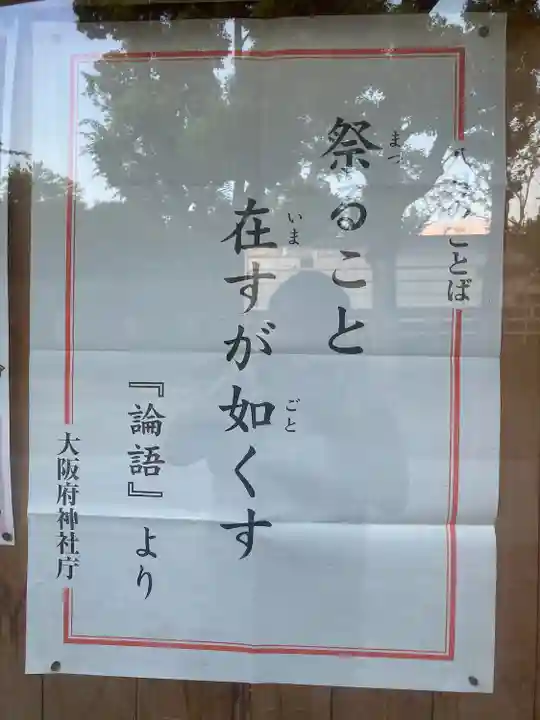 ことば
祭ること
まつ
在すが如くす
いま
ごと
『論語』より
大阪府神社庁